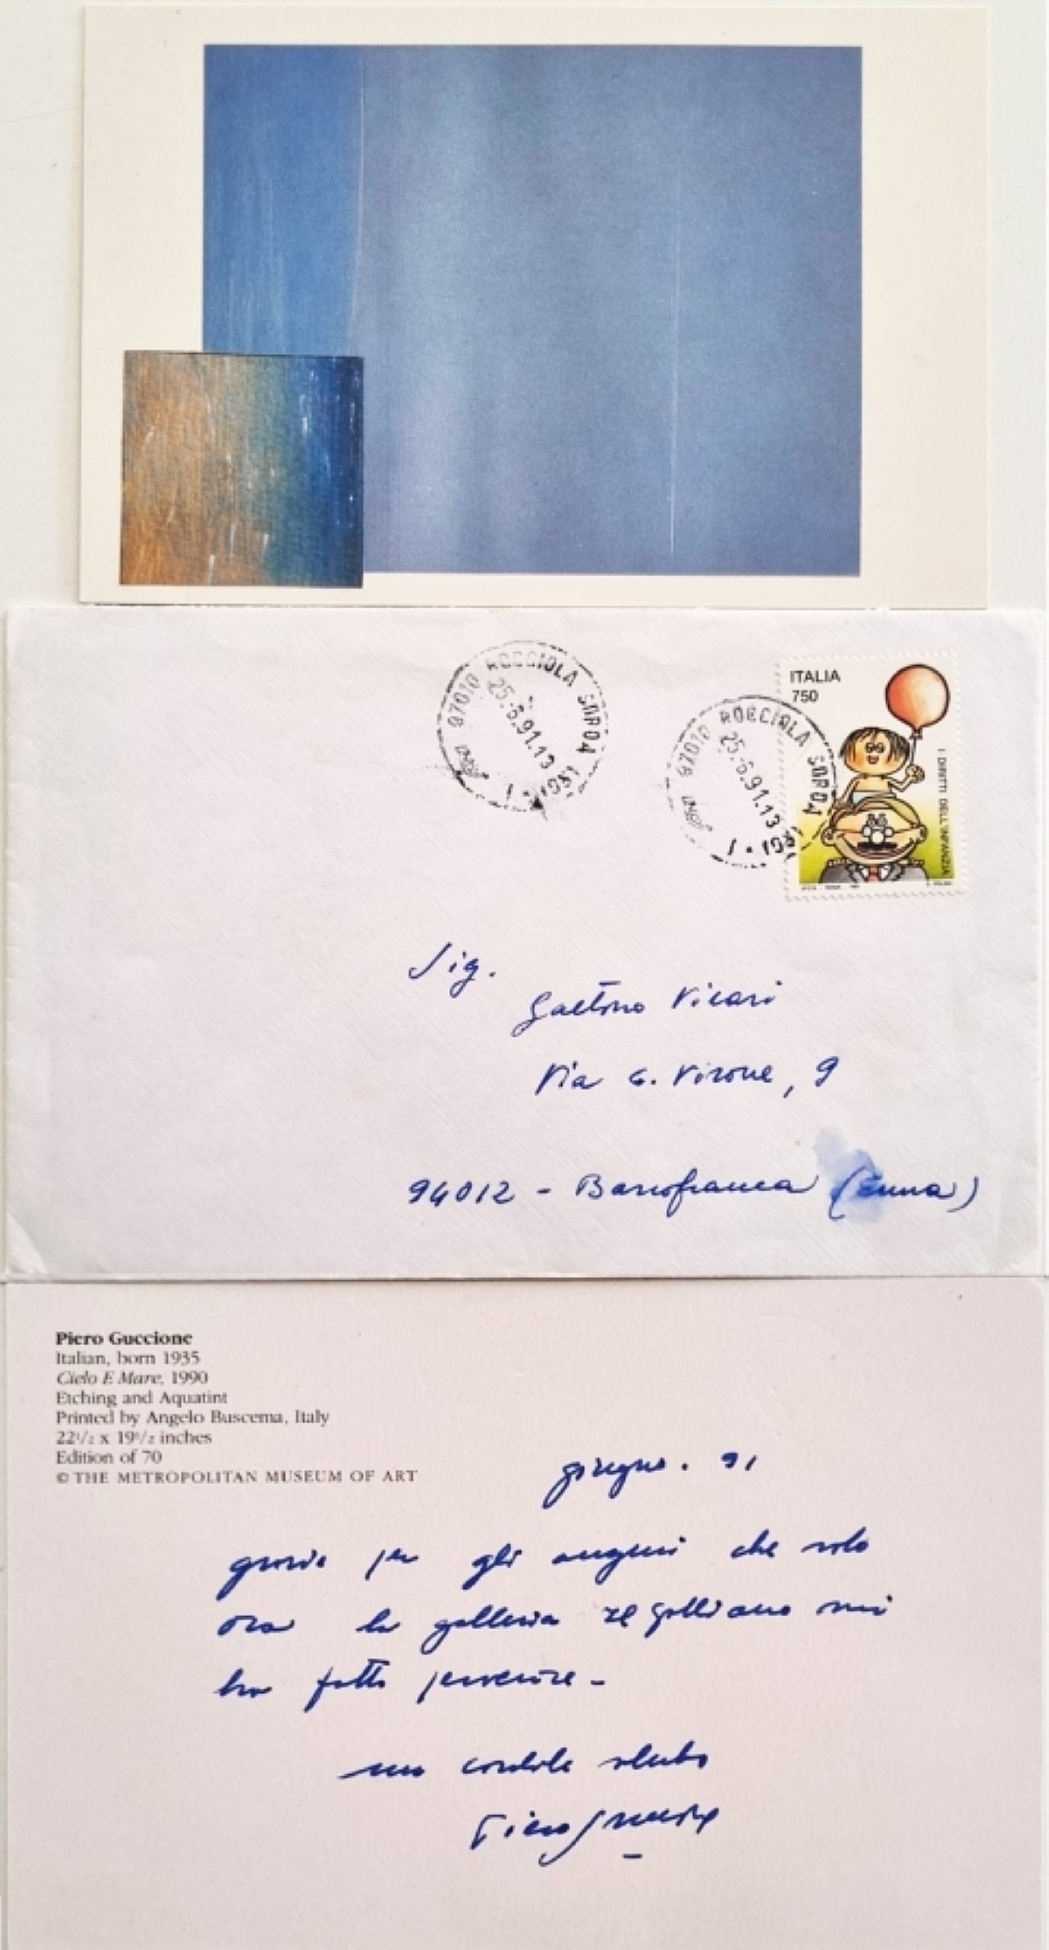 97010 ROCCIOLA SORDA (RG)
25.6.91.13
97010 ROCCIOLA SORDA (RG)
25.6.91.13
ITALIA
750
I DIRITTI DELL'INFANZIA
Sig.
Gaetano Vicari
Via G. Virone, 9
94012 - Barrafranca (Enna)
Piero Guccione
Italian, born 1935
Cielo E Mare, 1990
Etching and Aquatint
Printed by Angelo Buscema, Italy
22 1/2 x 19 1/2 inches
Edition of 70
© THE METROPOLITAN MUSEUM OF ART
giugno. 91
grazie per gli auguri che solo
ora la galleria
mi
ha fatto pervenire -
un cordiale saluto
Piero Guccione